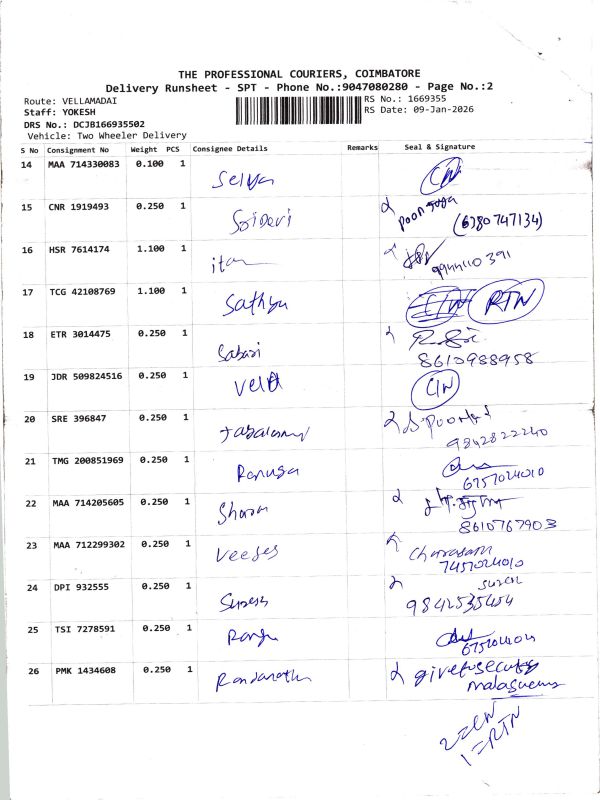 THE PROFESSIONAL COURIERS, COIMBATORE
Delivery Runsheet - SPT - Phone No.:9047080280 - Page No.:2
Route: VELLAMADAI
Staff: YOKESH
DRS No.: DCJB166935502
Vehicle: Two Wheeler Delivery
RS No.: 1669355
RS Date: 09-Jan-2026
S No Consignment No Weight PCS Consignee Details Remarks Seal & Signature
14 MAA 714330083 0.100 1 Selva
15 CNR 1919493 0.250 1 Sridevi (6380747134)
16 HSR 7614174 1.100 1 9944110391
17 TCG 42108769 1.100 1 Sathya RTN
18 ETR 3014475 0.250 1 Sabari
8610988958
19 JDR 509824516 0.250 1
20 SRE 396847 0.250 1
9842822240
21 TMG 200851969 0.250 1
6757024010
22 MAA 714205605 0.250 1 Sharan
8610767903
23 MAA 712299302 0.250 1
7457024010
24 DPI 932555 0.250 1 Suresh
9842535454
25 TSI 7278591 0.250 1
26 PMK 1434608 0.250 1
1=RTN